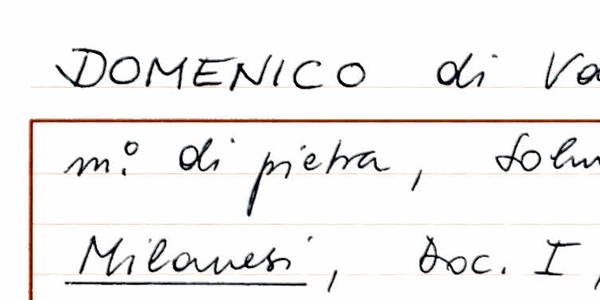 DOMENICO di
m.º di pietra,
Milanesi, Doc. I,